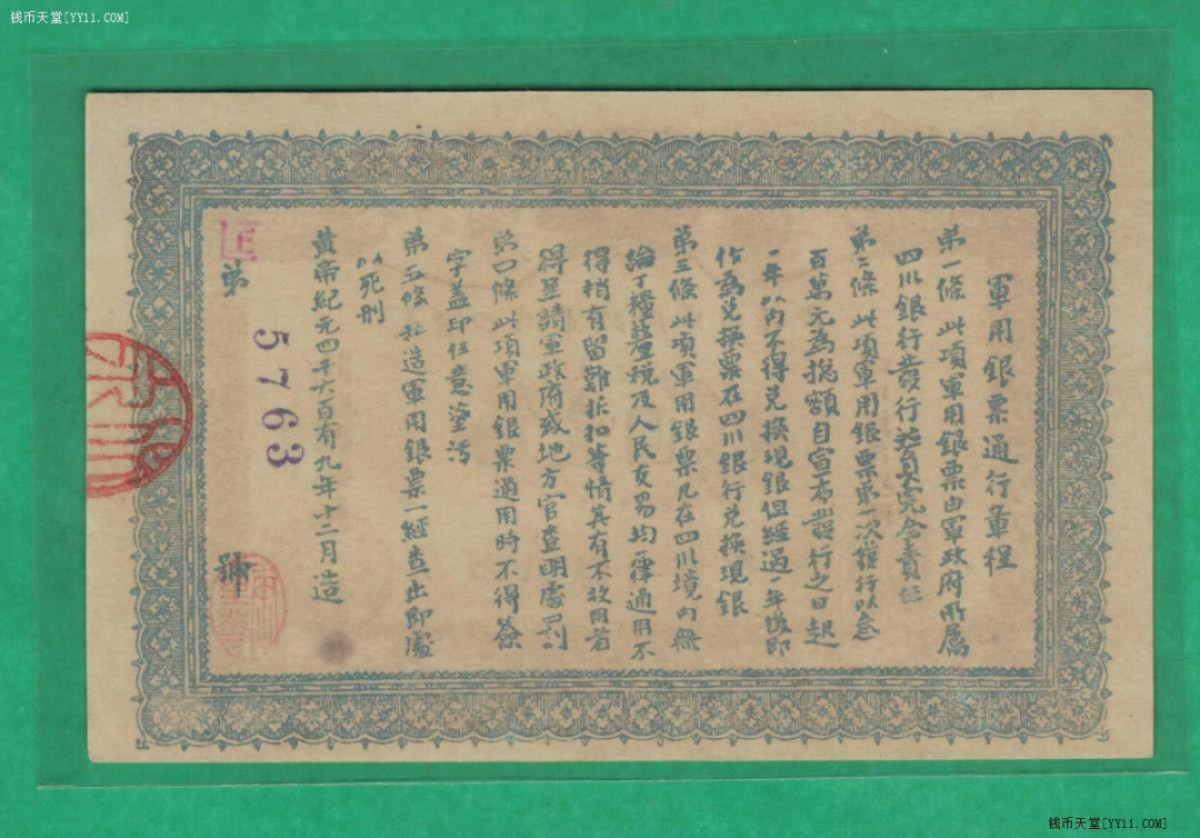 钱币天堂[YY11.COM]
軍用銀票通行章程
第一條 此項軍用銀票由軍政府所属
四川銀行發行 完全責任
第二條 此項軍用銀票第一次發行以叁
百萬元為總額自宣布發行之日起
一年以內不得兑換現銀但經過一年後即
作為兑換票在四川銀行兑換現銀
第三條 此項軍用銀票凡在四川境內無
論丁糧釐税及人民交易均一律通用不
得稍有留難折扣等情其有不 用者
得呈請軍政府或地方官查明處罰
第四條 此項軍用銀票通用時不得簽
字蓋印任意塗污
第五條 私造軍用銀票一經查出即處
以死刑
黄帝紀元四千六百有九年十二月造
第 5763 號
钱币天堂[YY11.COM]